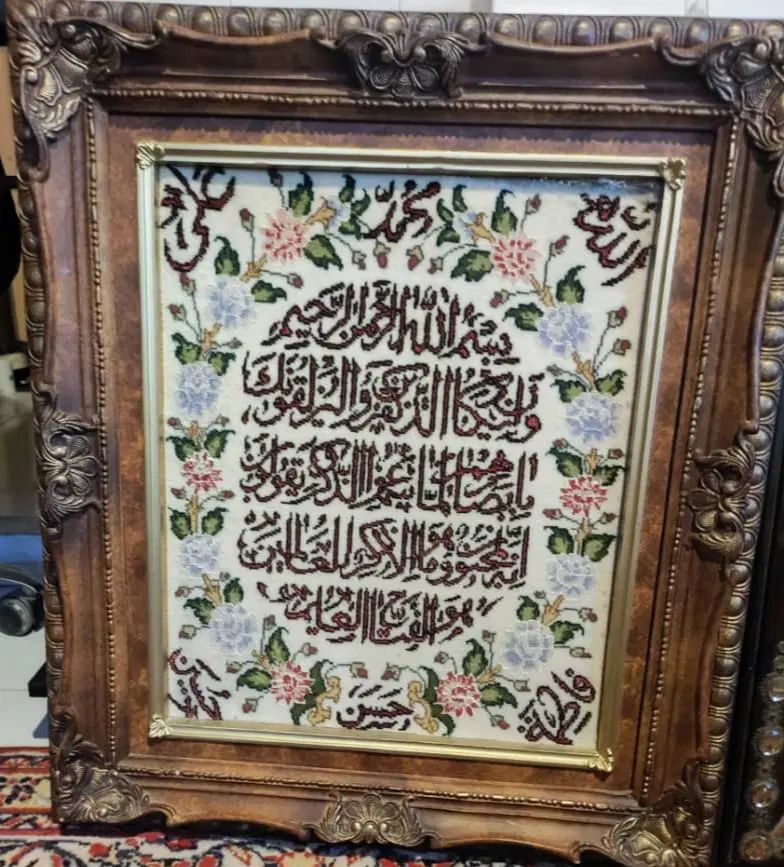 الله
محمد
علی
بسم الله الرحمن الرحیم
وان یکاد الذین کفروا لیزلقونک
بابصارهم لما سمعوا الذکر و یقولون
انه لمجنون و ما هو الا ذکر للعالمین
هو الفتاح العلیم
فاطمة
حسن
حسین